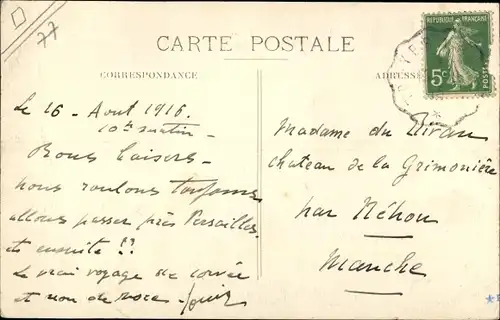 77
CARTE POSTALE
CORRESPONDANCE
ADRESSE
RÉPUBLIQUE FRANÇAISE
5c
POSTES
Le 16 - Aout 1916.
10h matin
Bons baisers -
nous roulons toujours
allons passer près Versailles.
et ensuite ??
Le vrai voyage de corvée
et non de noce -
Madame du
chateau de la Grimonière
par Néhou
Manche